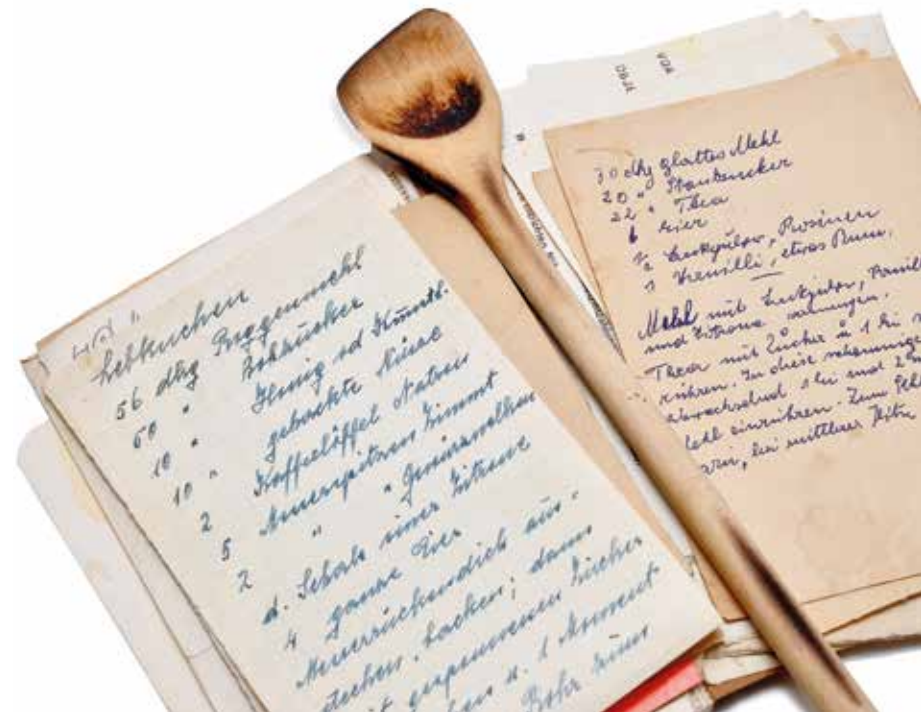 Lebkuchen
56 dkg Roggenmehl
50 " Rohzucker
10 " Honig od Kunsth.
10 " gehackte Nüsse
2 Kaffeelöffel Natron
5 Messerspitzen Zimmt
2 " " Gewürznelken
d. Schale einer Zitrone
4 ganze Eier
Messerrückendick aus-
stechen, backen; dann
gesponnenen Zucker
u. 1 Moment
Rohr
30 dkg glattes Mehl
20 " Staubzucker
22 " Thea
6 Eier
1/2 Backpulver, Rosinen
1 Vanilli, etwas Rum.
Mehl mit Backpulver, Vanill
und Zitrone vermengen.
Thea mit Zucker u 1 Ei
rühren. In diese
abwechselnd 1 Ei und
Mehl einrühren. Zum
bei mittlerer Hitze
OBJE
VOR